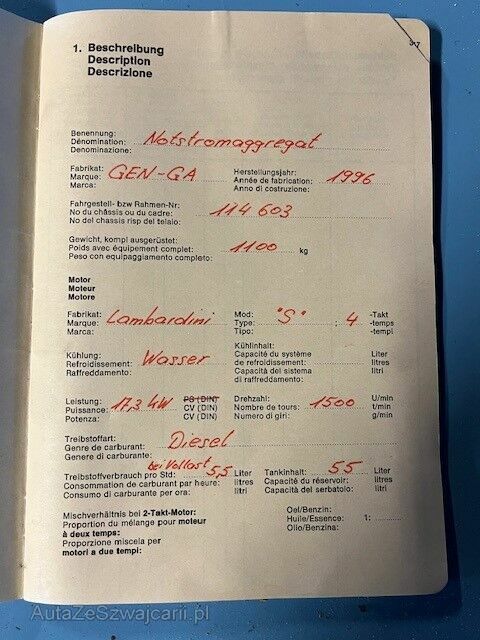 37
1. Beschreibung
Description
Descrizione
Benennung:
Dénomination: Notstromaggregat
Denominazione:
Fabrikat: Herstellungsjahr:
Marque: GEN-GA Année de fabrication: 1996
Marca: Anno di costruzione:
Fahrgestell- bzw Rahmen-Nr:
No du châssis ou du cadre: 114 603
No del chassis risp del telaio:
Gewicht, kompl ausgerüstet:
Poids avec équipement complet: 1100 kg
Peso con equipaggiamento completo:
Motor
Moteur
Motore
Fabrikat: Mod: -Takt
Marque: Lambardini Type: "S" ; 4 -temps
Marca: Tipo: -tempi
Kühlung: Kühlinhalt:
Refroidissement: Wasser Capacité du système Liter
Raffreddamento: de refroidissement: litres
Capacità del sistema litri
di raffreddamento:
Leistung: PS (DIN) Drehzahl: U/min
Puissance: 17,3 kW CV (DIN) Nombre de tours: 1500 t/min
Potenza: CV (DIN) Numero di giri: g/min
Treibstoffart:
Genre de carburant: Diesel
Genere di carburante:
bei Vollast
Treibstoffverbrauch pro Std: 5,5 Liter Tankinhalt: 55 Liter
Consommation de carburant par heure: litres Capacité du réservoir: litres
Consumo di carburante per ora: litri Capacità del serbatoio: litri
Mischverhältnis bei 2-Takt-Motor: Oel/Benzin:
Proportion du mélange pour moteur Huile/Essence: 1:
à deux temps: Olio/Benzina:
Proporzione miscela per
motori a due tempi:
AutaZeSzwajcarii.pl